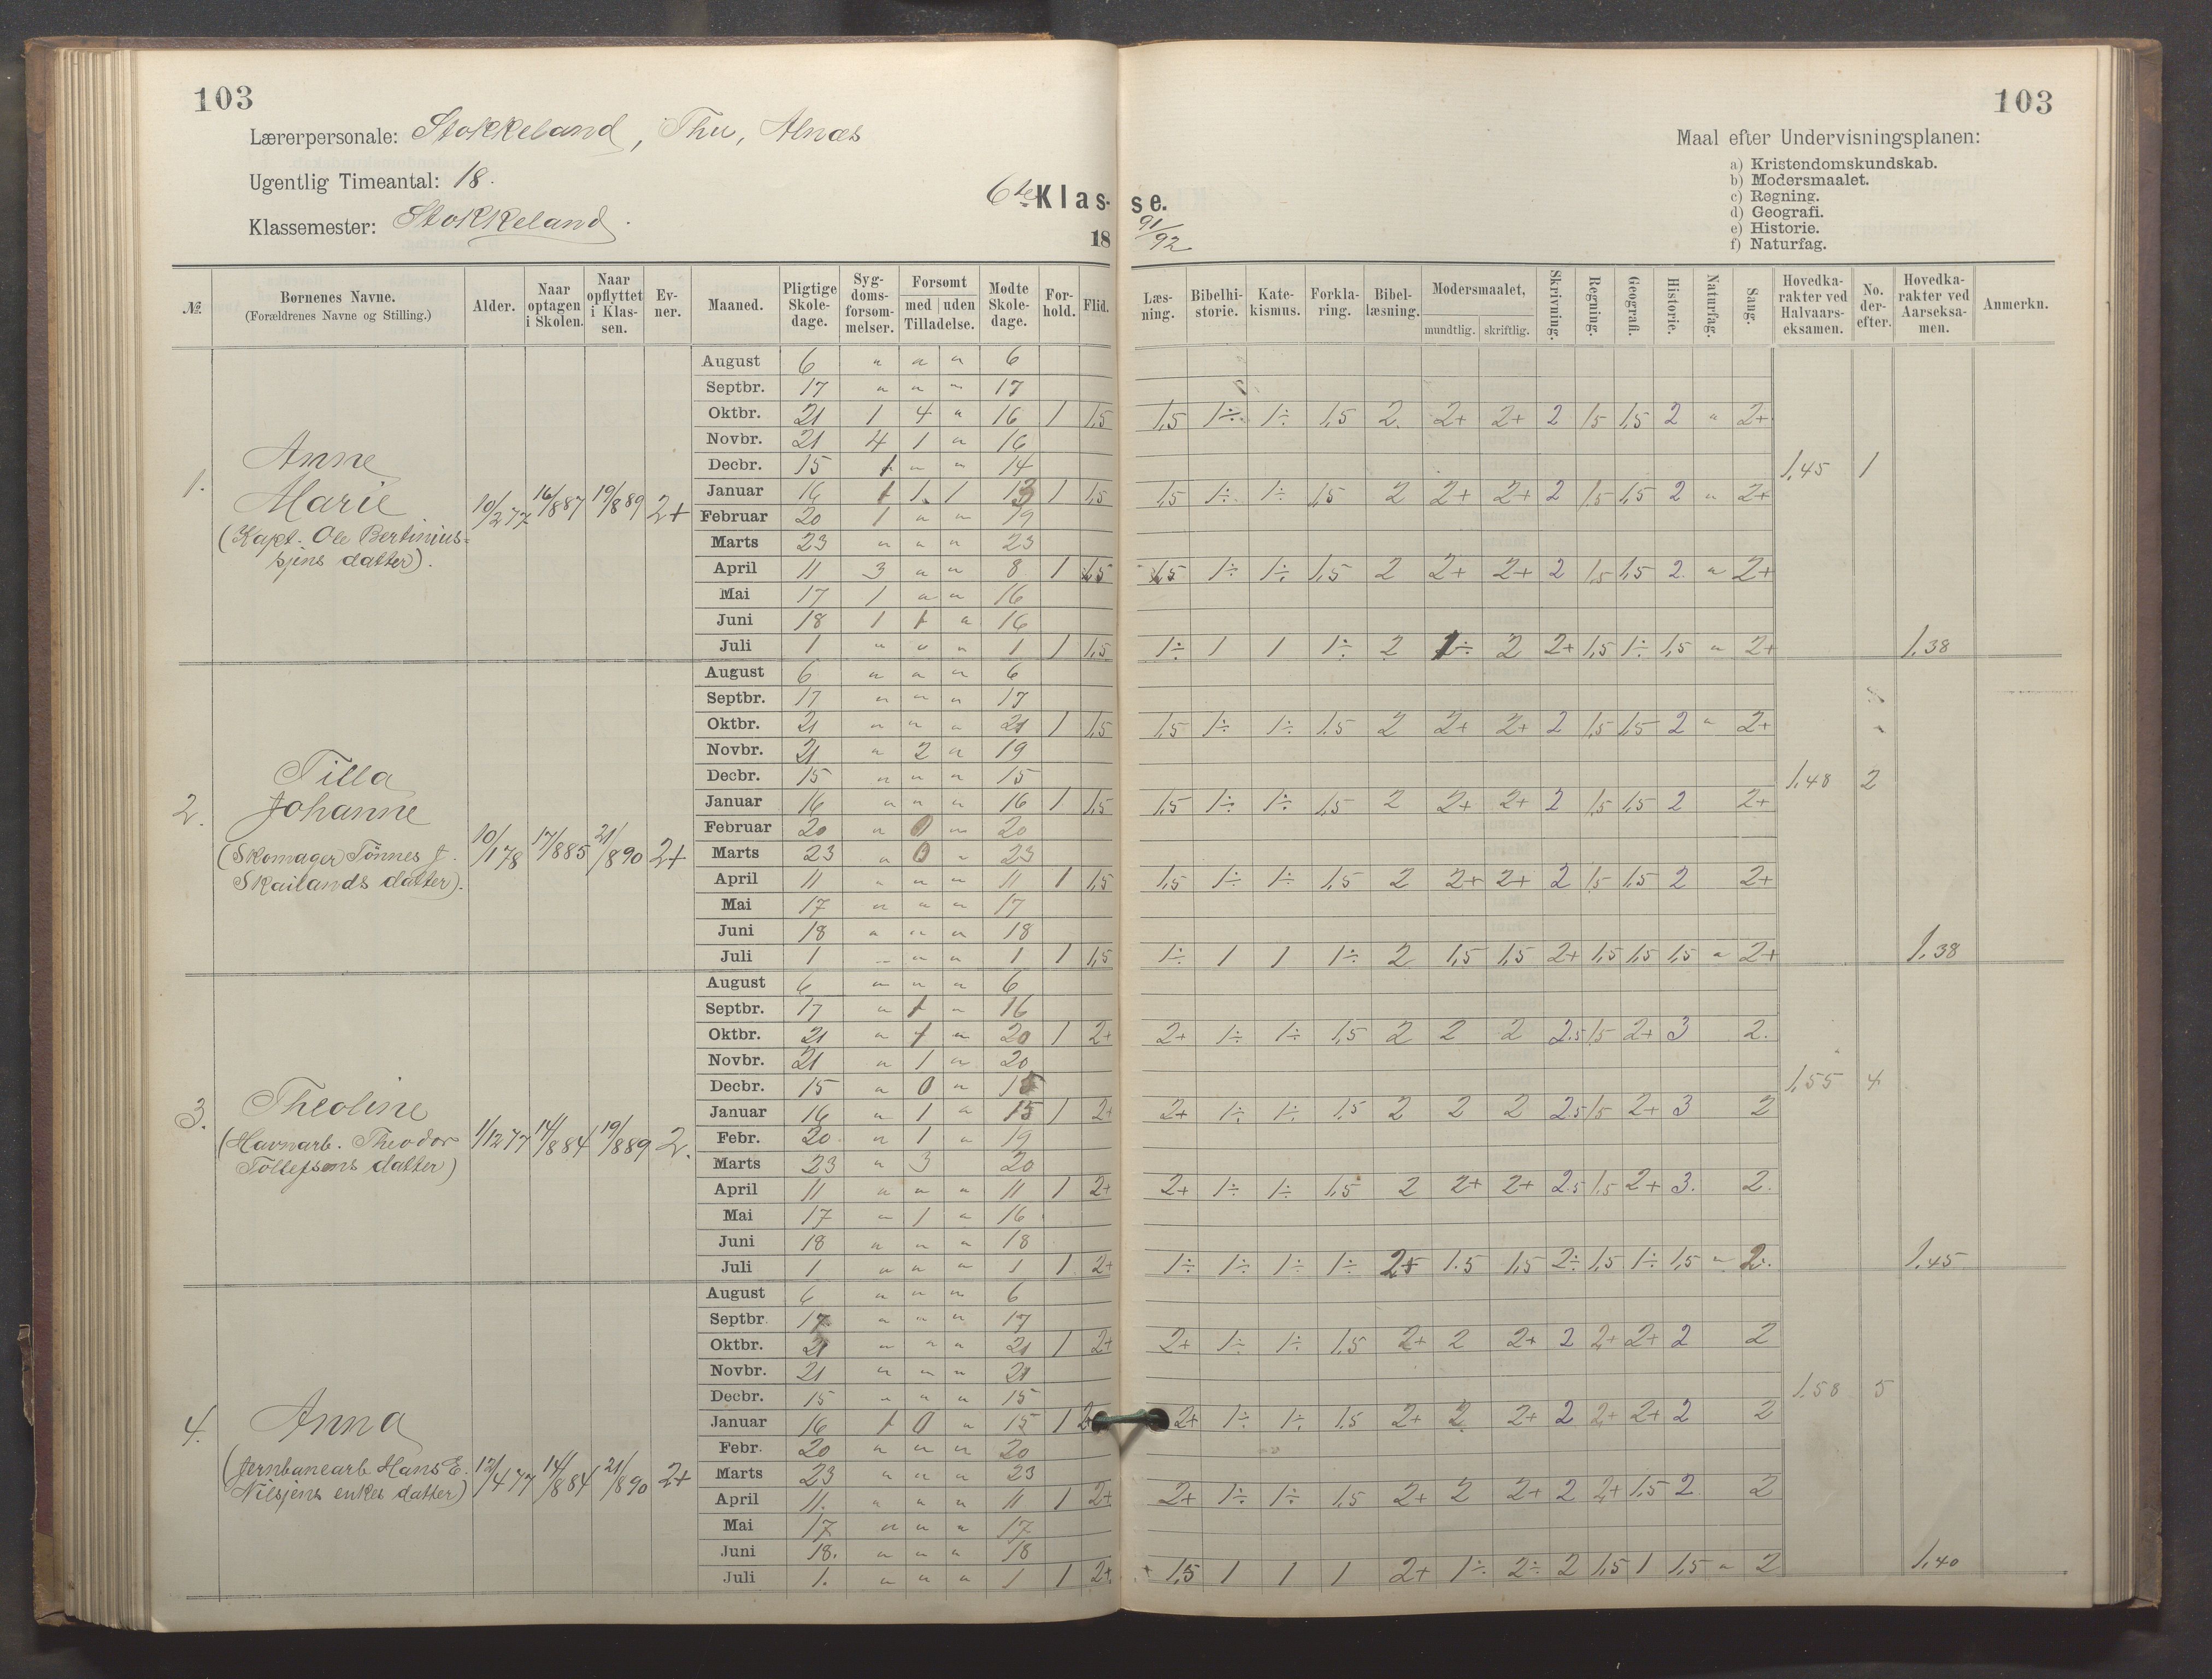 103
103
Lærerpersonale: Stokkeland, Thu, Alnæs
Ugentlig Timeantal: 18.
Klassemester: Stokkeland.
6te Klas-se.
18 91/92
Maal efter Undervisningsplanen:
a) Kristendomskundskab.
b) Modersmaalet.
c) Regning.
d) Geografi.
e) Historie.
f) Naturfag.
№ Børnenes Navne. (Forældrenes Navne og Stilling.) Alder. Naar optagen i Skolen. Naar opflyttet i Klassen. Evner. Maaned. Pligtige Skoledage. Sygdomsforsømmelser. Forsømt med uden Tilladelse. Mødte Skoledage. Forhold. Flid. Læsning. Bibelhistorie. Katekismus. Forklaring. Bibellæsning. Modersmaalet, mundtlig. skriftlig. Skrivning. Regning. Geografi. Historie. Naturfag. Sang. Hovedkarakter ved Halvaarseksamen. No. derefter. Hovedkarakter ved Aarseksamen. Anmerkn.
1. Anne Marie
(Kapt. Ole Bertinius-
sens datter).
10/2 77 16/8 87 19/8 89 2+
August 6 " " " 6
Septbr. 17 " " " 17
Oktbr. 21 1 4 " 16 1 1,5 1,5 1÷ 1÷ 1,5 2 2+ 2+ 2 1,5 1,5 2 " 2+
Novbr. 21 4 1 " 16
Decbr. 15 1 " " 14 1,45 1
Januar 16 1 1 1 13 1 1,5 1,5 1÷ 1÷ 1,5 2 2+ 2+ 2 1,5 1,5 2 " 2+
Februar 20 1 " " 19
Marts 23 " " " 23
April 11 3 " " 8 1 1,5 1,5 1÷ 1÷ 1,5 2 2+ 2+ 2 1,5 1,5 2 " 2+
Mai 17 1 " " 16
Juni 18 1 1 " 16
Juli 1 " " " 1 1 1,5 1÷ 1 1 1÷ 2 1÷ 2 2+ 1,5 1÷ 1,5 " 2+ 1,38
2. Tilla Johanne
(Skomager Tønnes J.
Skailands datter).
10/1 78 17/8 85 21/8 90 2+
August 6 " " " 6
Septbr. 17 " " " 17
Oktbr. 21 " " " 21 1 1,5 1,5 1÷ 1÷ 1,5 2 2+ 2+ 2 1,5 1,5 2 " 2+
Novbr. 21 " 2 " 19
Decbr. 15 " " " 15 1,48 2
Januar 16 " " " 16 1 1,5 1,5 1÷ 1÷ 1,5 2 2+ 2+ 2 1,5 1,5 2 2+
Februar 20 " 0 " 20
Marts 23 " 0 " 23
April 11 " " " 11 1 1,5 1,5 1÷ 1÷ 1,5 2 2+ 2+ 2 1,5 1,5 2 2+
Mai 17 " " " 17
Juni 18 " " " 18
Juli 1 " " " 1 1 1,5 1÷ 1 1 1÷ 2 1,5 1,5 2+ 1,5 1,5 1,5 " 2+ 1,38
3. Theoline
(Havnarb. Theodor
Tollefsens datter)
1/12 77 14/8 84 19/8 89 2.
August 6 " " " 6
Septbr. 17 " 1 " 16
Oktbr. 21 " 1 " 20 1 2+ 2+ 1÷ 1÷ 1,5 2 2 2 2.5 1,5 2+ 3 2.
Novbr. 21 " 1 " 20
Decbr. 15 " 0 " 15 1,55 4
Januar 16 " 1 " 15 1 2+ 2+ 1÷ 1÷ 1,5 2 2 2 2.5 1,5 2+ 3 2
Febr. 20 " 1 " 19
Marts 23 " 3 " 20
April 11 " " " 11 1 2+ 2+ 1÷ 1÷ 1,5 2 2+ 2+ 2.5 1,5 2+ 3. 2.
Mai 17 " 1 " 16
Juni 18 " " " 18
Juli 1 " " " 1 1 2+ 1÷ 1÷ 1÷ 1÷ 2+ 1.5 1,5 2÷ 1,5 1÷ 1,5 " 2. 1,45
4. Anna
(Jernbanearb Hans E.
Nilsens enkes datter)
12/4 77 14/8 84 21/8 90 2+
August 6 " " " 6
Septbr 17 " " " 17
Oktbr. 21 " " " 21 1 2+ 2+ 1÷ 1÷ 1,5 2+ 2 2+ 2 2+ 2+ 2 2
Novbr. 21 " " " 21
Decbr. 15 " " " 15 1,58 5
Januar 16 1 0 " 15 1 2+ 2+ 1÷ 1÷ 1,5 2+ 2 2+ 2 2+ 2+ 2 2
Febr. 20 " " " 20
Marts 23 " " " 23
April 11. " " " 11 1 2+ 2+ 1÷ 1÷ 1,5 2+ 2 2+ 2 2+ 1,5 2 2
Mai 17 " " " 17
Juni 18. " " " 18
Juli 1. " " " 1 1 2+ 1,5 1 1 1 2+ 1÷ 2÷ 2 1,5 1 1,5 " 2 1,40